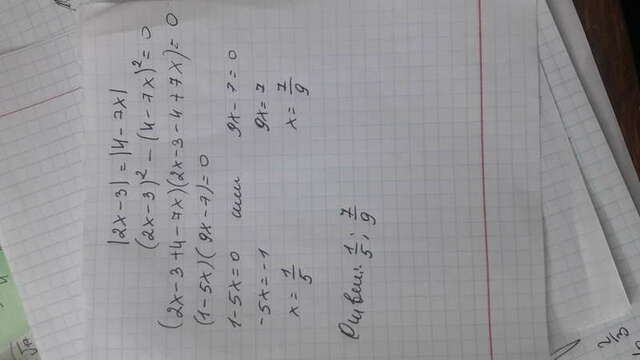 |2x-3| = |4-7x|
(2x-3)² - (4-7x)² = 0
(2x-3+4-7x)(2x-3-4+7x) = 0
(1-5x)(9x-7) = 0
1-5x=0 или 9x-7=0
-5x=-1 9x=7
x=1/5 x=7/9
Ответ: 1/5; 7/9
2/3